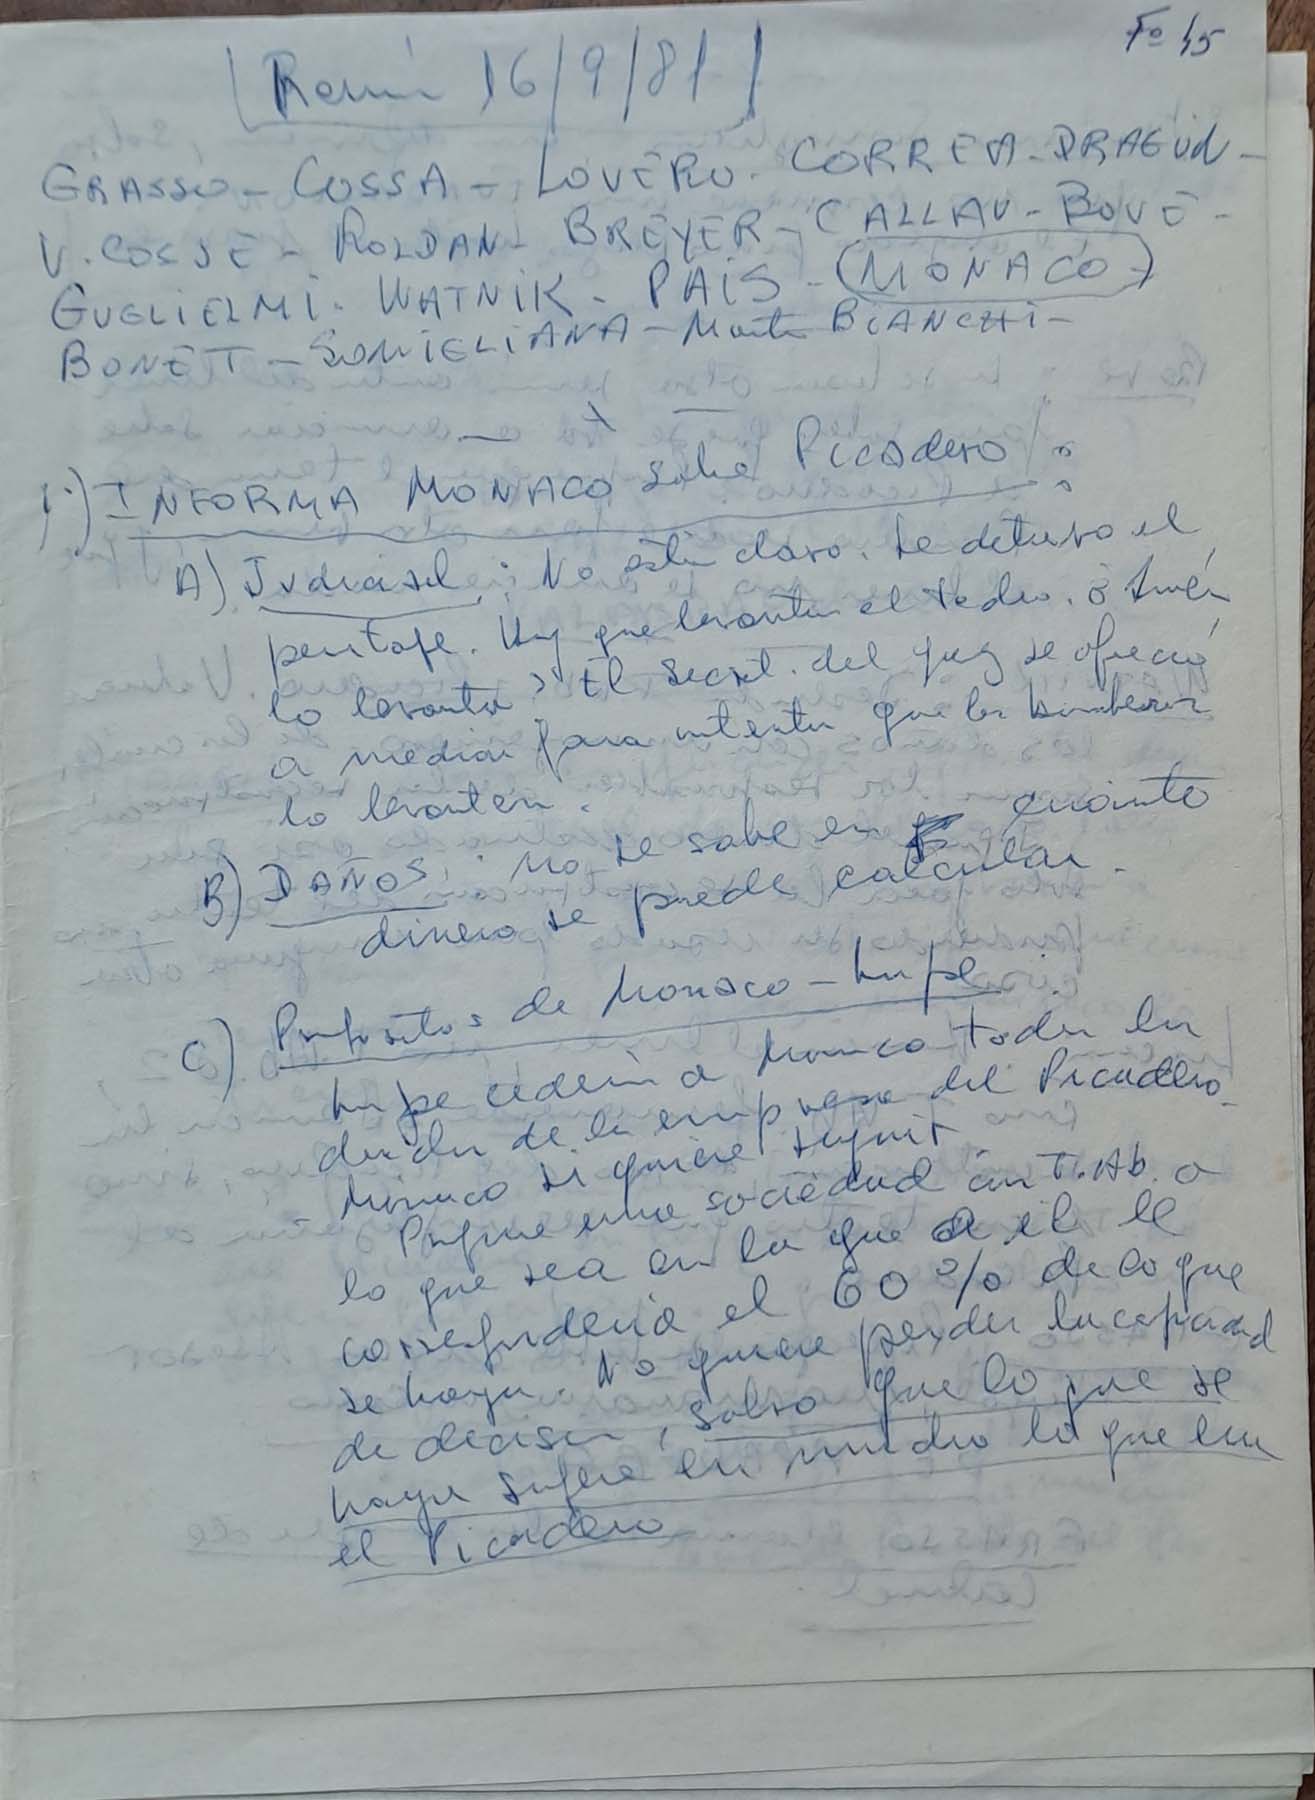 Fº 45
Reun 16/9/81
GRASSO - COSSA - LOVERO - CORREA - DRAGUN -
V. COSSE - ROLDAN - BREYER - CALLAU - BOVE -
GUGLIELMI - WATNIK - PAIS - (MONACO)
BONET - SOMIGLIANA - Marta BIANCHI -
1.) INFORMA MONACO sobre Picadero:
A) Judicial: No está claro. Se detuvo el
peritaje. Hay que levantar el techo. ¿Quién
lo levanta? El Secret. del juez se ofreció
a mediar para intentar que los bomberos
lo levanten.
B) DAÑOS: No se sabe en cuánto
dinero se puede calcular.
C) Propósitos de Monaco - Lupe
Lupe cedería a Monaco todas las
deudas de la empresa del Picadero.
Monaco si quiere seguir.
Propone una sociedad con T. Ab. o
lo que sea en la que a él le
correspondería el 60% de lo que
se haga. No quiere perder la capacidad
de decisión, salvo que lo que se
haga supere en mucho lo que era
el Picadero